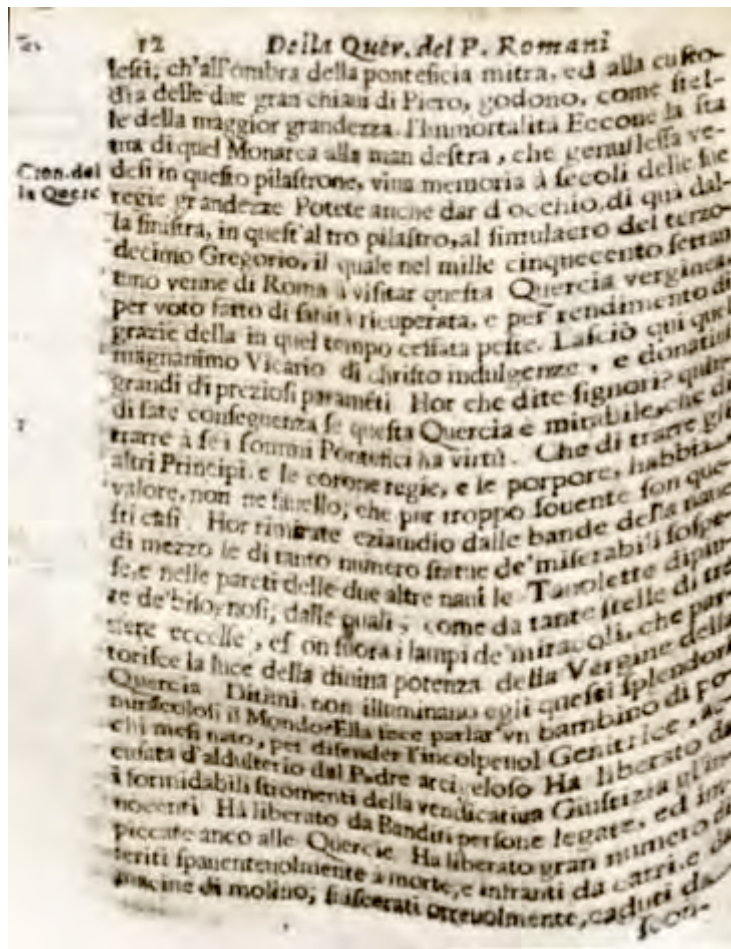 12 Della Quer. del P. Romani
lesti, ch'all'ombra della ponteficia mitra, ed alla custo-
dia delle due gran chiaui di Piero, godono, come stel-
le della maggior grandezza. l'Immortalità Eccoue la sta
tua di quel Monarca alla man destra, che genuflessa ve-
Cron. del
la Querc
desi in questo pilastrone, viua memoria à secoli delle sue
regie grandezze Potete anche dar d'occhio, di quà dal-
la sinistra, in quest'al tro pilastro, al simulacro del terzo-
decimo Gregorio, il quale nel mille cinquecento settan
venne di Roma à visitar questa Quercia verginea
per voto fatto di sanità ricuperata, e per rendimento di
grazie della in quel tempo cessata peste. Lasciò qui quel
magnanimo Vicario di christo indulgenze, e donatiui
grandi di preziosi paraméti Hor che dite signori? quin-
di fate conseguenza se questa Quercia è mirabile, che di
trarre à se i sommi Pontefici ha virtù. Che di trarre gli
altri Principi, e le corone regie, e le porpore, habbia
valore, non ne fauello, che pur troppo souente son que-
sti casi. Hor rimirate eziandio dalle bande della naue
di mezzo le di tanto numero statue de' miserabili sospe-
se, e nelle pareti delle due altre naui le Tauolette dipin-
te de' bisognosi, dalle quali, come da tante stelle di tré
sfere eccelse, escon fuora i lampi de' miracoli, che par-
torisce la luce della diuina potenza della Vergine della
Quercia Ditemi non illuminano egli questi splendori
miracolosi il Mondo? Ella fece parlar vn bambino di po
chi mesi nato, per difender l'incolpeuol Genitrice, ac-
cusata d'aldulterio dal Padre arcigeloso Ha liberato da
i formidabili stromenti della vendicatiua Giustizia gl'in-
nocenti Hà liberato da Banditi persone legate, ed im
piccate anco alle Quercie. Ha liberato gran numero di
feriti spauenteuolmente a morte, e infranti da carri, e da
macine di molino, sfascerati orreuolmente, caduti da
scon-